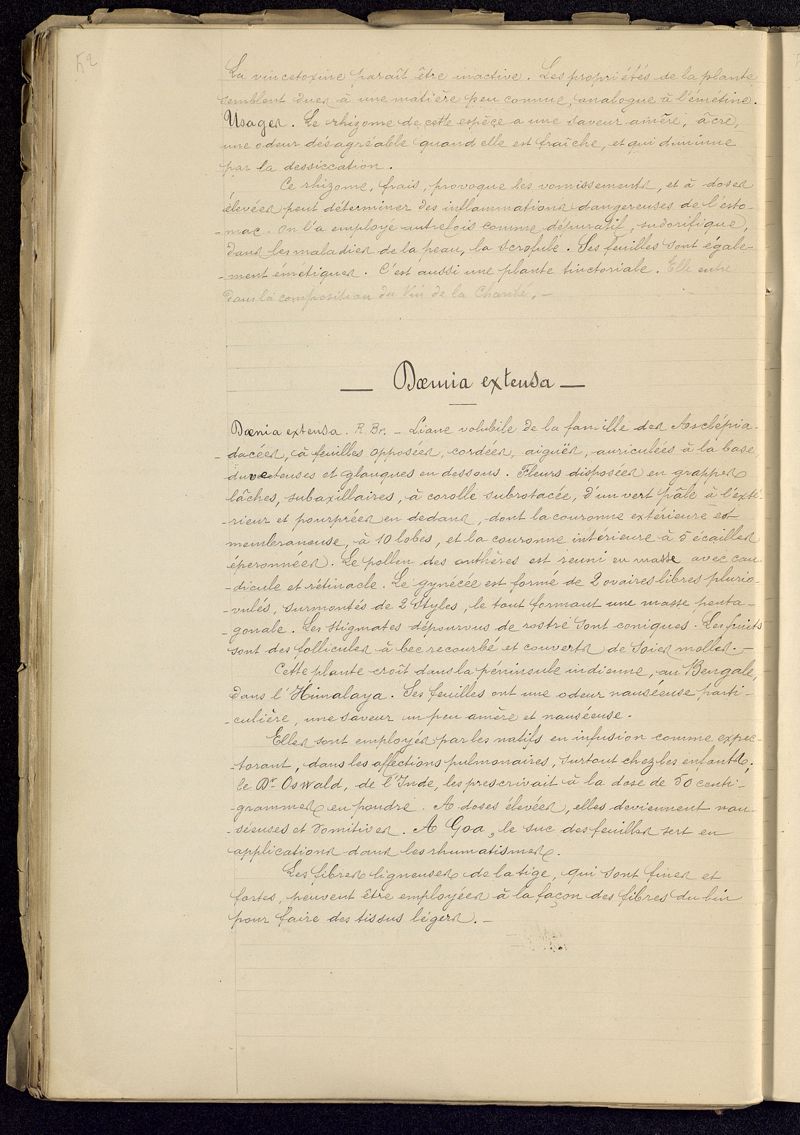 52
La vincetoxine paraît être inactive. Les propriétés de la plante
semblent dues à une matière peu connue, analogue à l'émétine.
Usages. Le rhizome de cette espèce a une saveur amère, âcre,
une odeur désagréable quand elle est fraîche, et qui diminue
par la dessiccation.
Ce rhizome, frais, provoque les vomissements, et à doses
élevées peut déterminer des inflammations dangereuses de l'esto-
-mac. On l'a employé autrefois comme dépuratif, sudorifique,
dans les maladies de la peau, la scrofule. Ses feuilles sont égale-
-ment émétiques. C'est aussi une plante tinctoriale. Elle entre
dans la composition du Vin de la Charité. —
— Dæmia extensa —
Dæmia extensa. R. Br. - Liane volubile de la famille des Asclépia-
-dacées, à feuilles opposées, cordées, aiguës, auriculées à la base,
duveteuses et glauques en dessous. Fleurs disposées en grappes
lâches, subaxillaires, à corolle subrotacée, d'un vert pâle à l'exté-
-rieur et pourprées en dedans, dont la couronne extérieure est
membraneuse, à 10 lobes, et la couronne intérieure à 5 écailles
éperonnées. Le pollen des anthères est réuni en masse avec cau-
-dicule et rétinacle. Le gynécée est formé de 2 ovaires libres plurio-
-vulés, surmontés de 2 styles, le tout formant une masse penta-
-gonale. Les stigmates dépourvus de rostre sont coniques. Les fruits
sont des follicules à bec recourbé et couverts de soies molles. —
Cette plante croît dans la péninsule indienne, au Bengale,
dans l'Himalaya. Ses feuilles ont une odeur nauséeuse parti-
-culière, une saveur un peu amère et nauséeuse.
Elles sont employées par les natifs en infusion comme expec-
-torant, dans les affections pulmonaires, surtout chez les enfants;
le Dr Oswald, de l'Inde, les prescrivait à la dose de 50 centi-
-grammes en poudre. A doses élevées, elles deviennent nau-
-séeuses et vomitives. A Goa, le suc des feuilles sert en
applications dans les rhumatismes.
Les fibres ligneuses de la tige, qui sont fines et
fortes, peuvent être employées à la façon des fibres du lin
pour faire des tissus légers. —